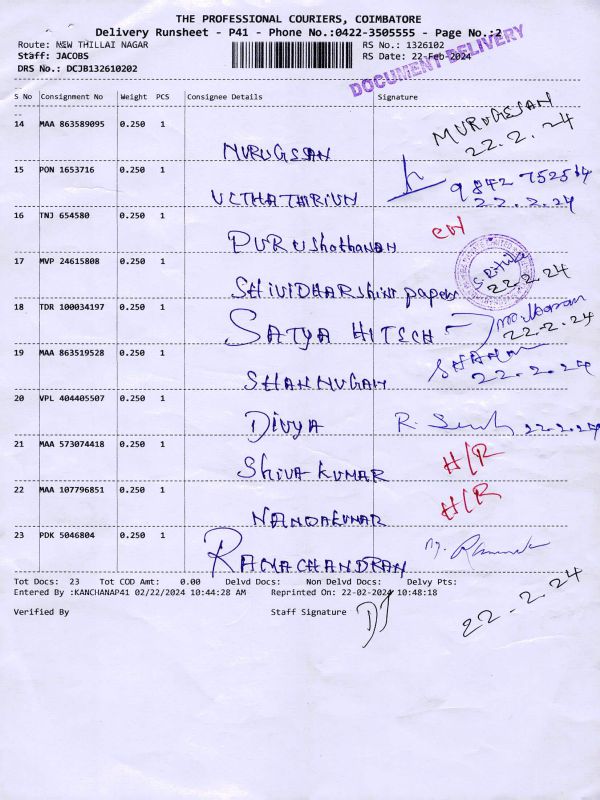 THE PROFESSIONAL COURIERS, COIMBATORE
Delivery Runsheet - P41 - Phone No.:0422-3505555 - Page No.:2
Route: NEW THILLAI NAGAR
RS No.: 1326102
Staff: JACOBS
RS Date: 22-Feb-2024
DRS No.: DCJB132610202
DOCUMENT DELIVERY
S No Consignment No Weight PCS Consignee Details Signature
14 MAA 863589095 0.250 1 MURUGESAN MURUGESAN
22.2.24
15 PON 1653716 0.250 1
22.2.24
16 TNJ 654580 0.250 1 PURUShothaman
17 MVP 24615808 0.250 1 paper 22.2.24
18 TDR 100034197 0.250 1 SATYA HITECH 22.2.24
19 MAA 863519528 0.250 1 SHANMUGAM 22.2.24
20 VPL 404405507 0.250 1 DIVYA 22.2.24
21 MAA 573074418 0.250 1 SHIVA KUMAR H/R
22 MAA 107796851 0.250 1 NANDAKUMAR H/R
23 PDK 5046804 0.250 1 RAMACHANDRAN
Tot Docs: 23 Tot COD Amt: 0.00 Delvd Docs: Non Delvd Docs: Delvy Pts:
Entered By :KANCHANAP41 02/22/2024 10:44:28 AM Reprinted On: 22-02-2024 10:48:18
Verified By Staff Signature 22.2.24